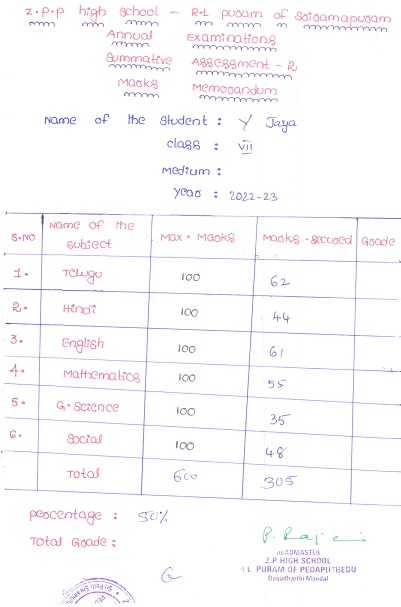 Z.P.P high school - R.L puram of Sriramapuram
Annual Examinations
Summative Assessment - 2
Marks Memorandum
Name of the Student : Y Jaya
class : VII
Medium :
Year : 2022-23
S.NO Name of the Subject Max. Marks Marks.Secured Grade
1. Telugu 100 62
2. Hindi 100 44
3. English 100 61
4. Mathematics 100 55
5. G.Science 100 35
6. Social 100 48
Total 600 305
percentage : 50%
Total Grade :
P. Raj
HEADMASTER
Z.P HIGH SCHOOL
R.L PURAM OF PEDAPUTHEDU
Dagadharthi Mandal